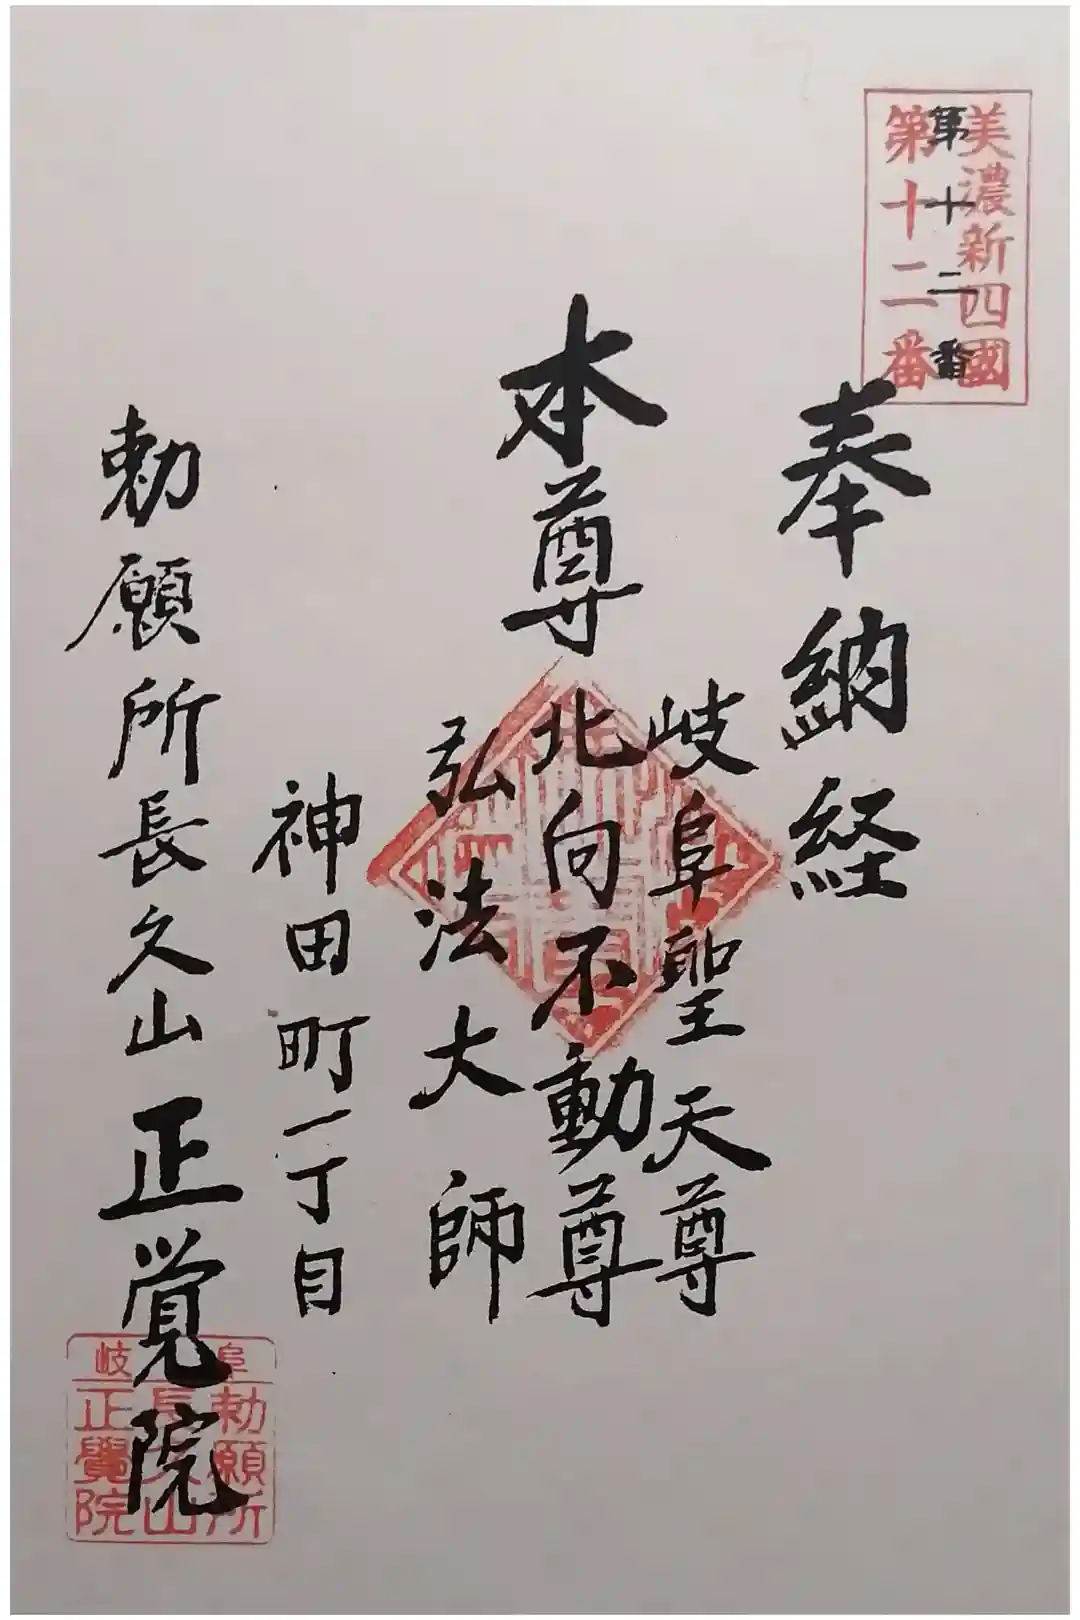 美濃新四國
第十二番
第十二番
奉納経
本尊
岐阜聖天尊
北向不動尊
弘法大師
神田町一丁目
勅願所長久山正覚院
岐阜
勅願所
長久山
正覺院